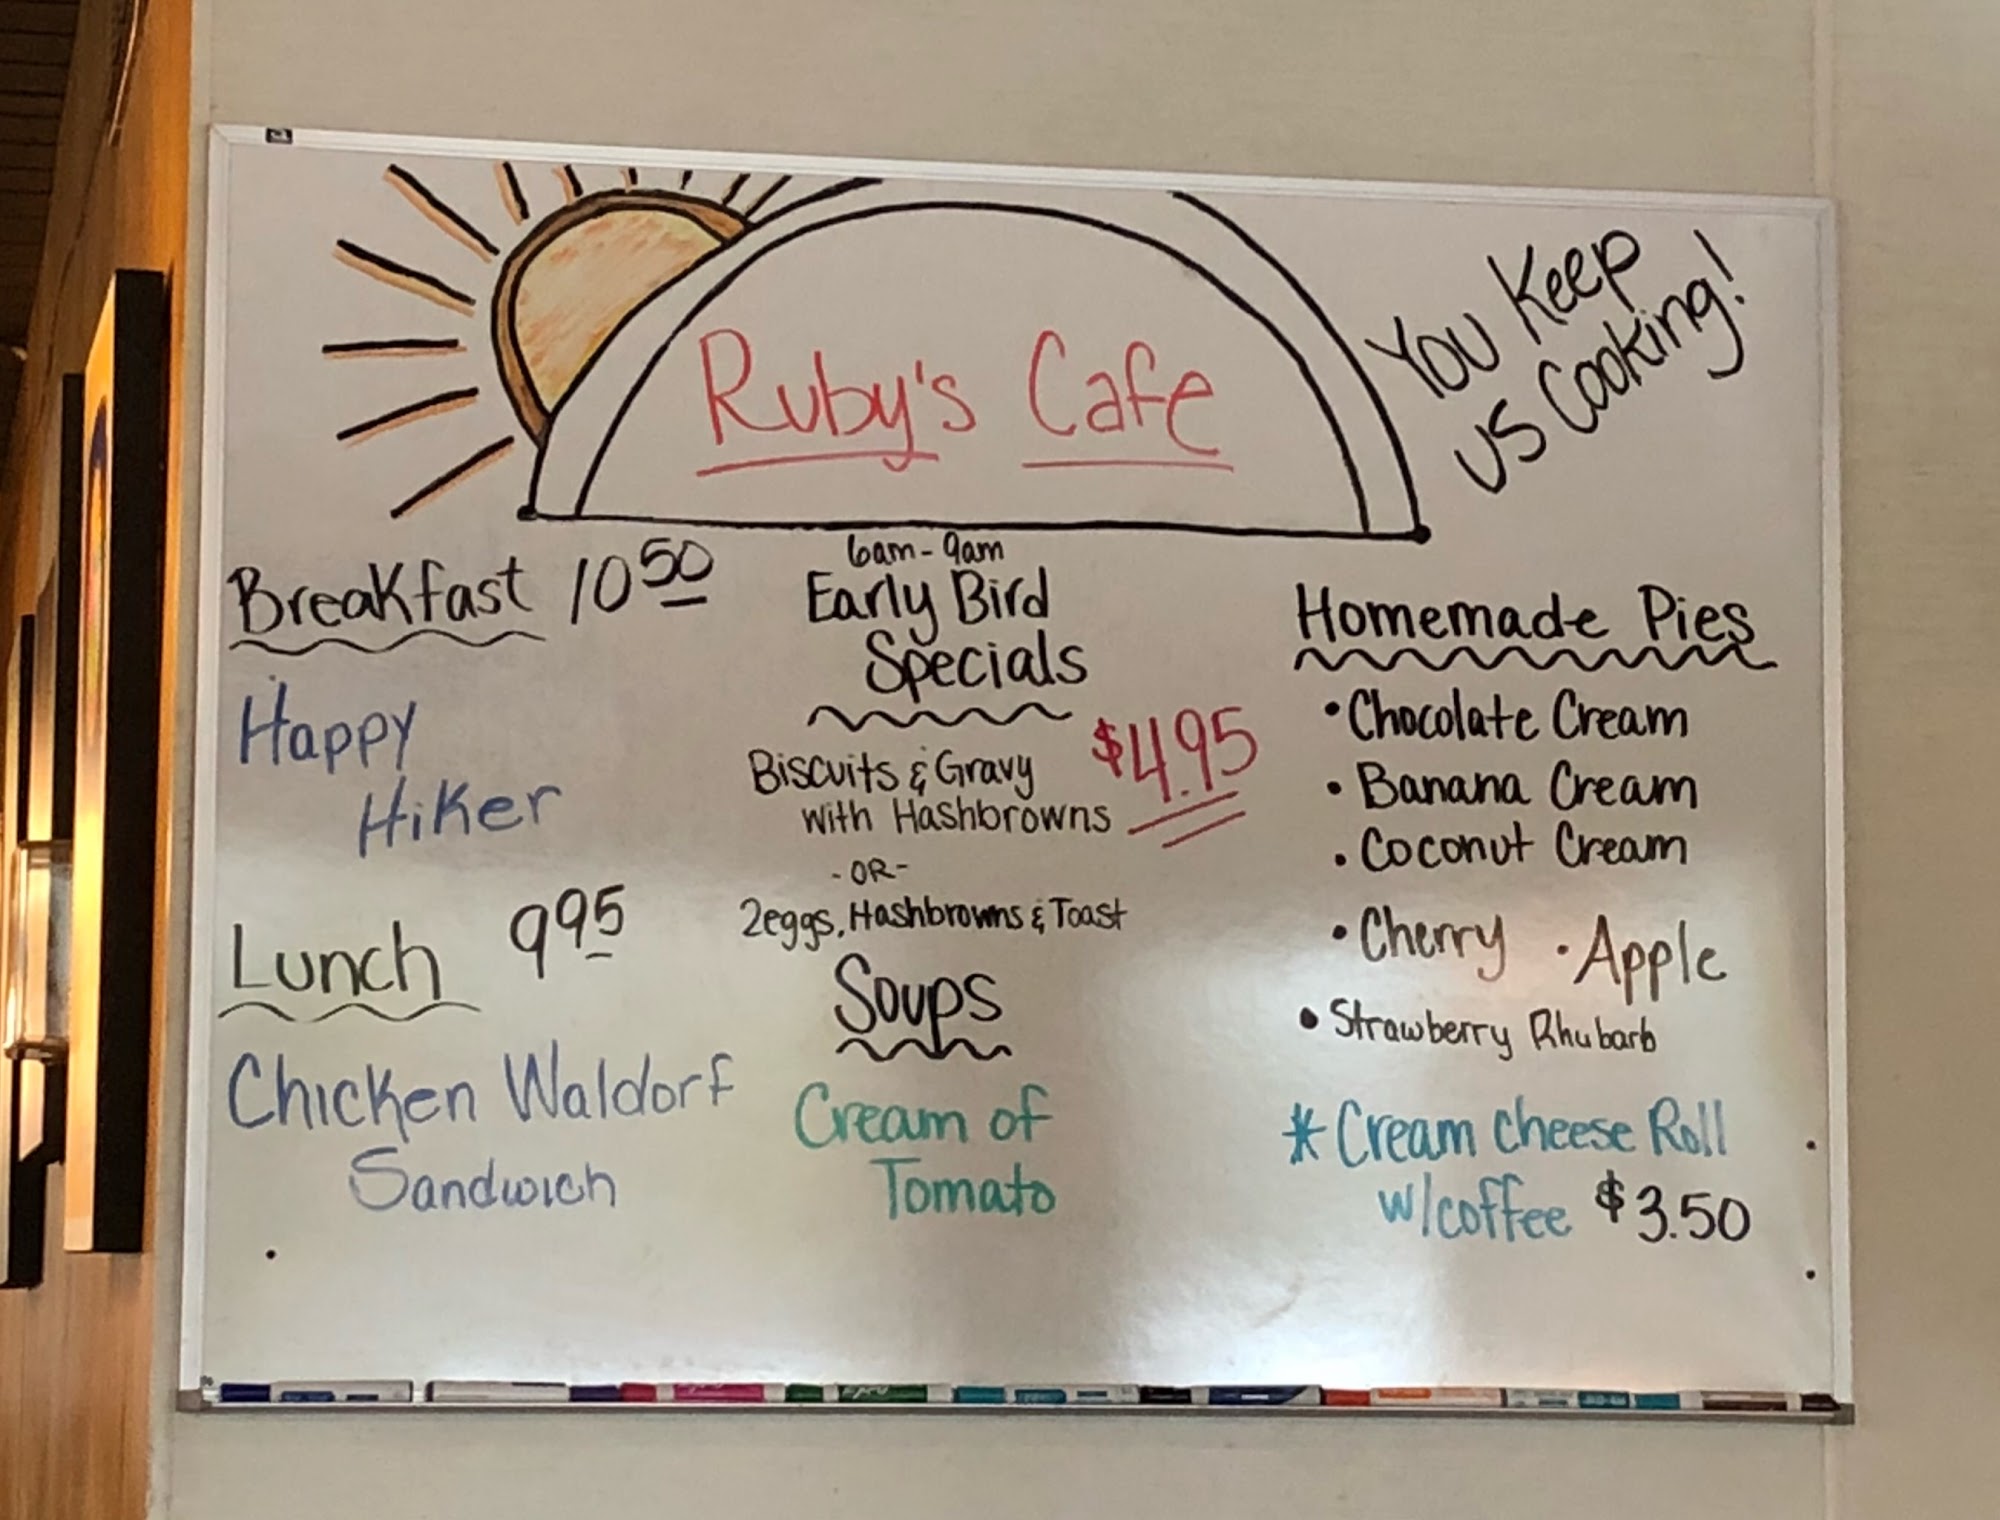 Ruby's Cafe
You Keep
us Cooking!
Breakfast 10 50
Happy
Hiker
Lunch 9 95
Chicken Waldorf
Sandwich
6am - 9am
Early Bird
Specials
Biscuits & Gravy
with Hashbrowns
$4.95
- OR -
2eggs, Hashbrowns & Toast
Soups
Cream of
Tomato
Homemade Pies
• Chocolate Cream
• Banana Cream
• Coconut Cream
• Cherry • Apple
• Strawberry Rhubarb
* Cream cheese Roll
w/coffee $3.50